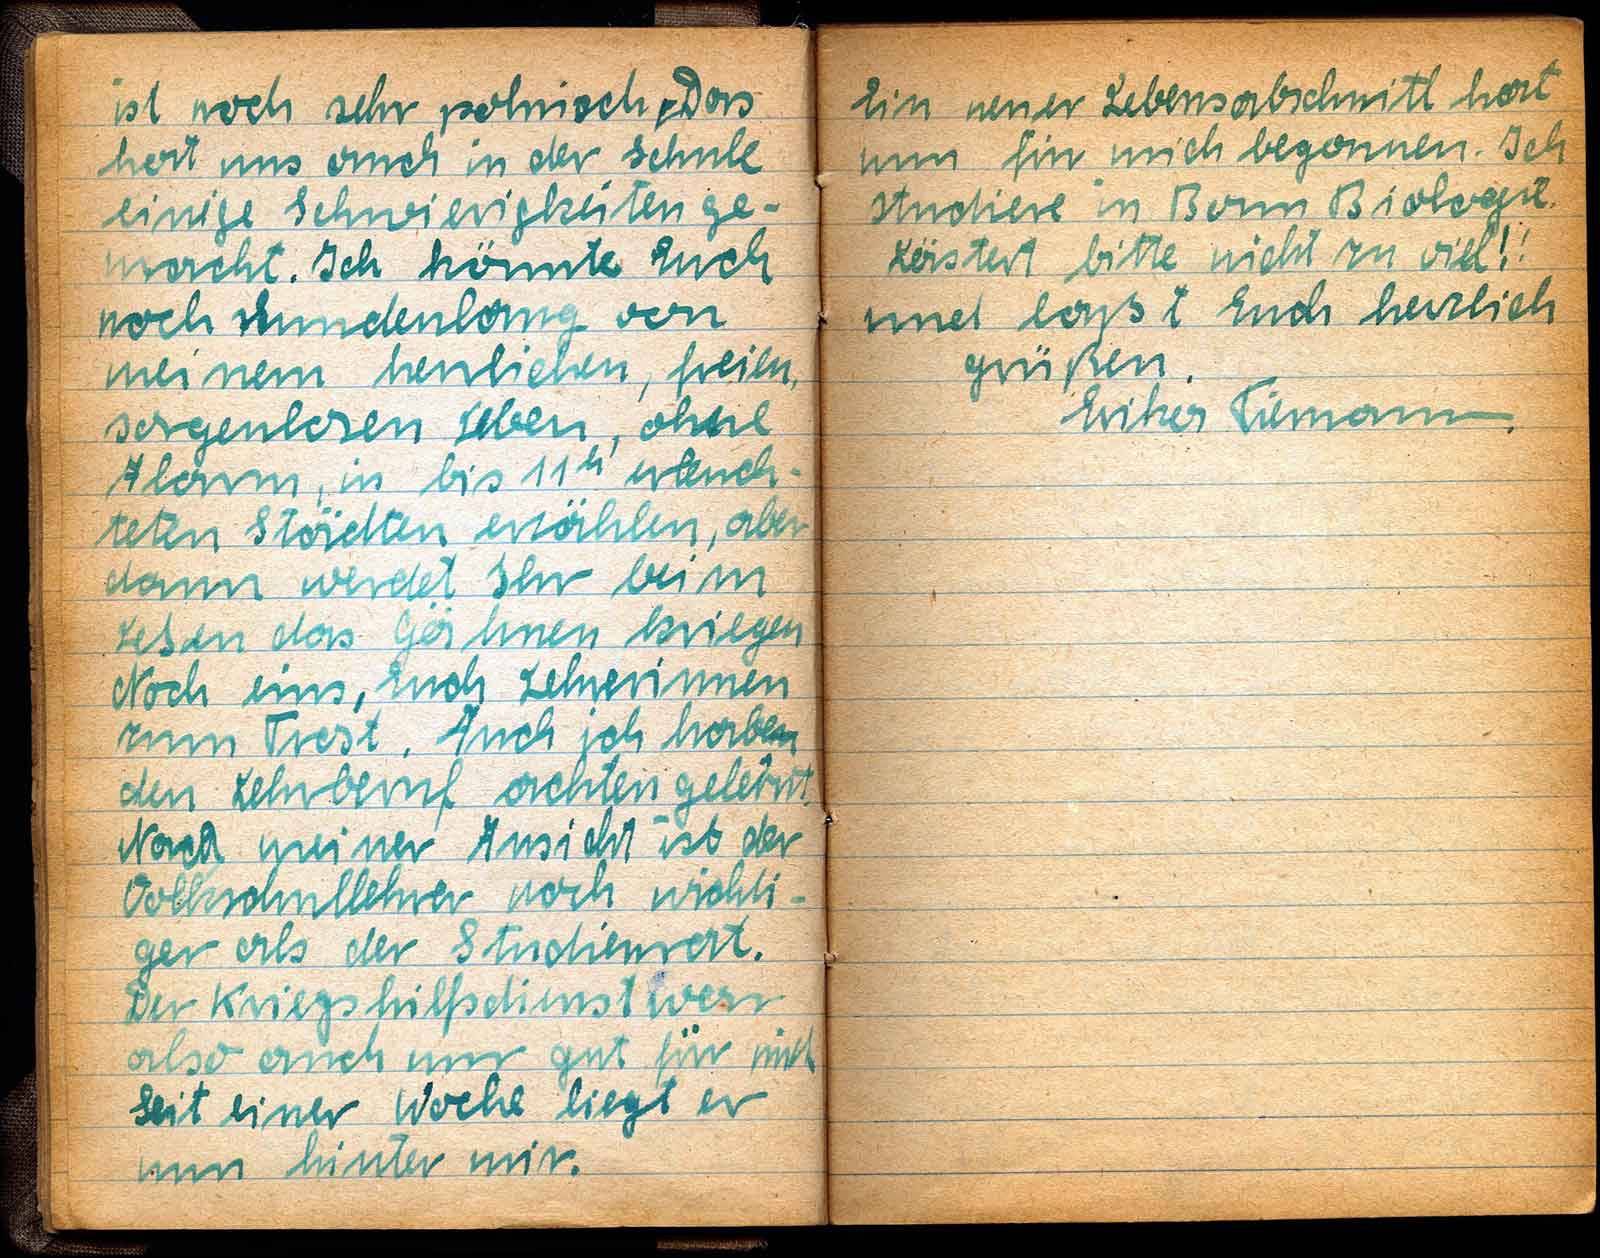 ist noch sehr polnisch. Das
hat uns auch in der Schule
einige Schwierigkeiten ge-
macht. Ich könnte Euch
noch stundenlang von
meinem herrlichen, freien,
sorgenlosen Leben, ohne
Alarm, in bis 11h erleuch-
teten Städten erzählen, aber
dann werdet Ihr beim
Lesen das Gähnen kriegen
Noch eins, Euch Lehrerinnen
zum Trost. Auch ich haben
den Lehrberuf achten gelernt.
Nach meiner Ansicht ist der
Volksschullehrer noch wichti-
ger als der Studienrat.
Der Kriegshilfsdienst war
also auch nur gut für mich
Seit einer Woche liegt er
nun hinter mir.
Ein neuer Lebensabschnitt hat
nun für mich begonnen. Ich
studiere in Bonn Biologie.
Lästert bitte nicht zu viel!!
und laßt Euch herzlich
grüßen.
Erika Tiemann.